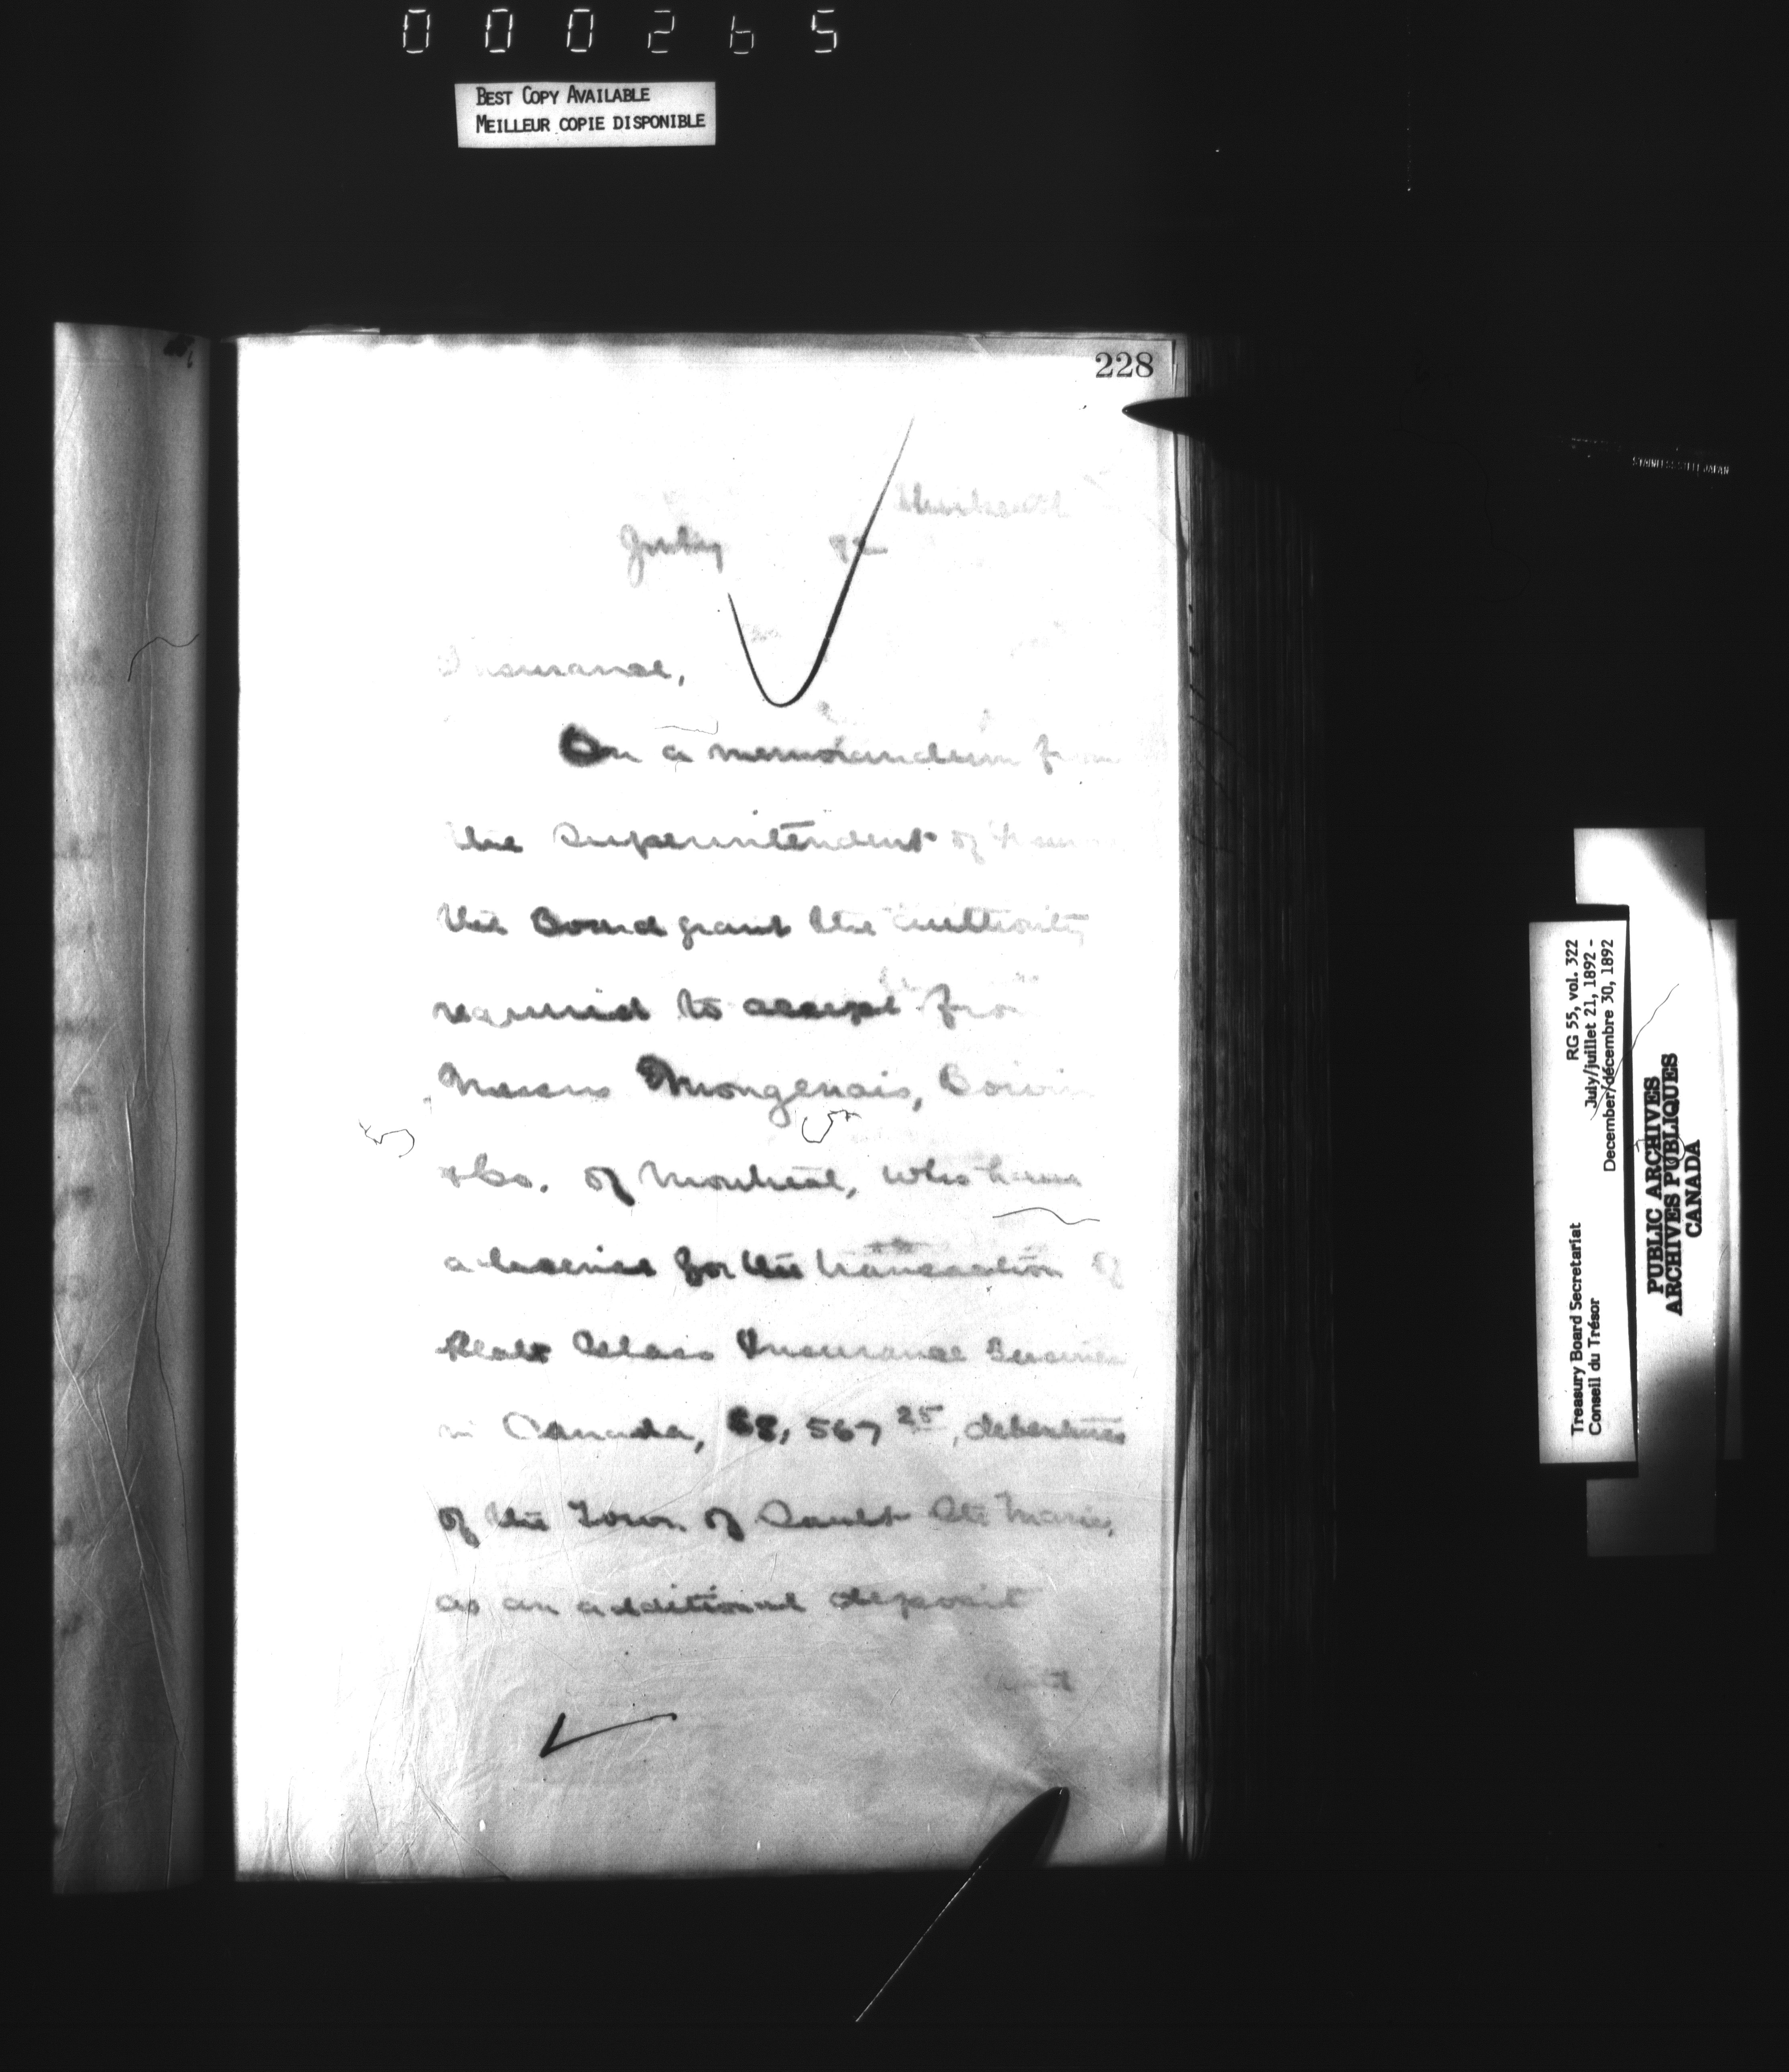 000265
BEST COPY AVAILABLE
MEILLEUR COPIE DISPONIBLE
228
July 92
Insurance,
On a memorandum from
the Superintendent of Insur
the Board grant the authority
required to accept from
Messrs Mongenais, Boivin
& Co. of Montreal, who have
a license for the transaction of
Plate Glass Insurance Business
in Canada, $8,567 25, debentures
of the Town of Sault Ste Marie,
as an additional deposit
STAINLESS STEEL JAPAN
Treasury Board Secretariat RG 55, vol. 322
Conseil du Trésor July/juillet 21, 1892 -
December/décembre 30, 1892
PUBLIC ARCHIVES
ARCHIVES PUBLIQUES
CANADA